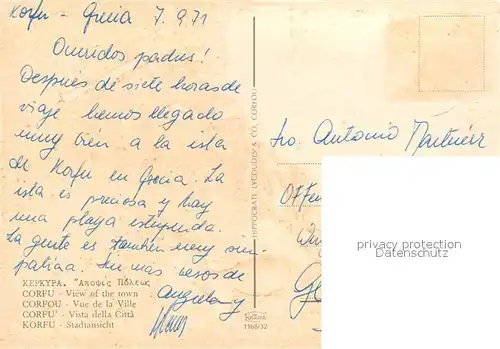 Korfu - Grecia 7.9.71
Queridos padres!
Después de siete horas de
viaje hemos llegado
muy bién a la isla
de Korfu en Grecia. La
isla es preciosa y hay
una playa estupenda.
La gente es también muy sim-
pática. Sin mas besos de
Angela y
ΚΕΡΚΥΡΑ. Ἄποψις Πόλεως
CORFU - View of the town
CORFOU - Vue de la Ville
CORFU' - Vista della Città
KORFU - Stadtansicht
HIPPOCRATE LYCOUDIS & CO, CORFOU
1168/32
Sro. Antonio Martinez
OFFen
privacy protection
Datenschutz